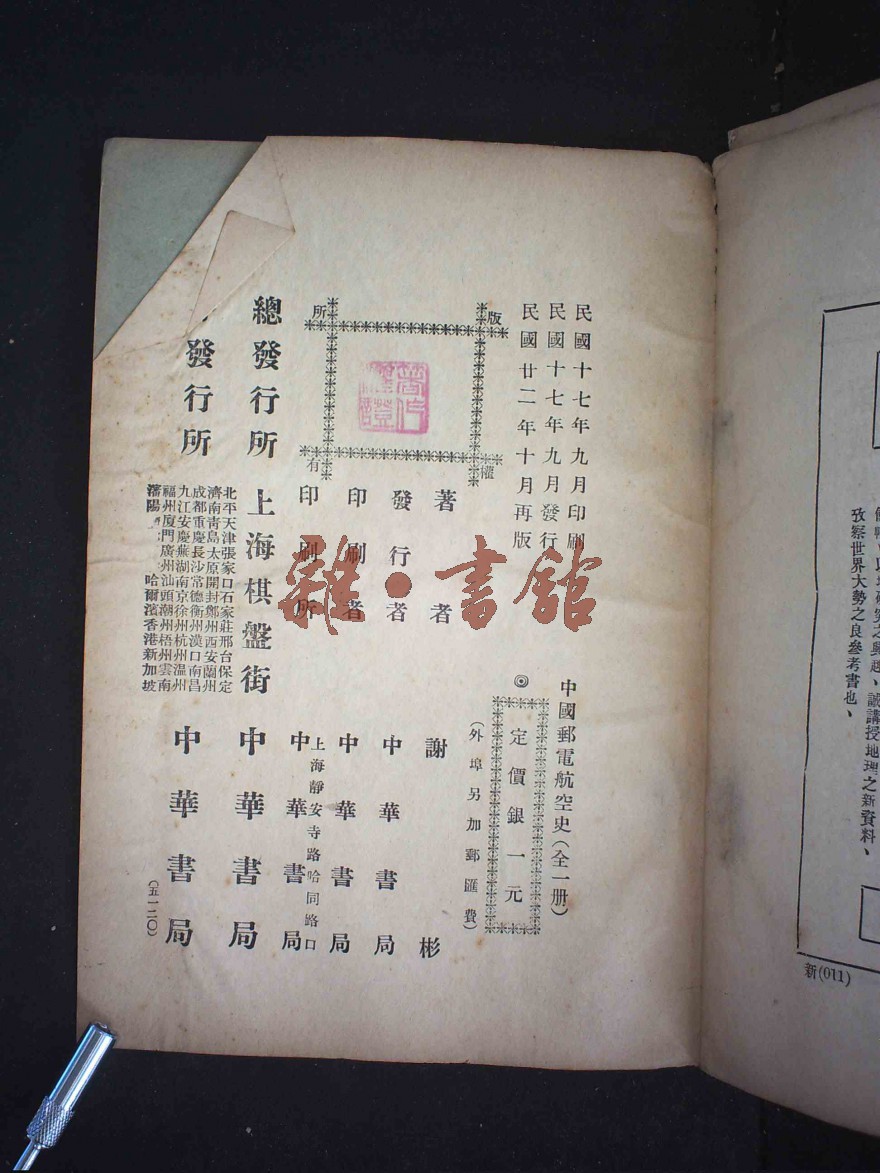 民國十七年九月印刷
民國十七年九月發行
民國廿二年十月再版
中國郵電航空史（全一册）
◎
定價銀一元
（外埠另加郵匯費）
版權所有
著者 謝彬
發行者 中華書局
印刷者 中華書局
上海靜安寺路哈同路口
印刷所 中華書局
總發行所 上海棋盤街 中華書局
發行所
北平天津張家口石家莊邢台保定
濟南青島太原開封鄭州西安蘭州
成都重慶長沙常德衡州漢口南昌
九江安慶蕪湖南京徐州杭州溫州
福州廈門廣州汕頭潮州梧州雲南
瀋陽 哈爾濱香港新加坡
中華書局
（五一二〇）
雜·書館
誠講授地理之新資料、
攷察世界大勢之良參考書也、
新(011)